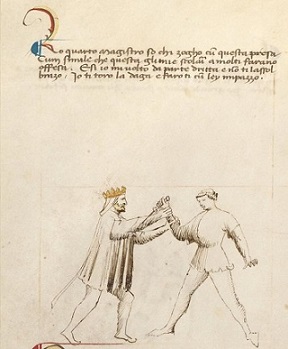 Lo quarto magistro so chi zogho cū questa presa
Cum simile che questa gli mie scolari a molti farano
offesa. E si io mi volto da parte dritta e nō ti lasso l
brazo, Io ti toro la daga e faroti cū ley impazo.